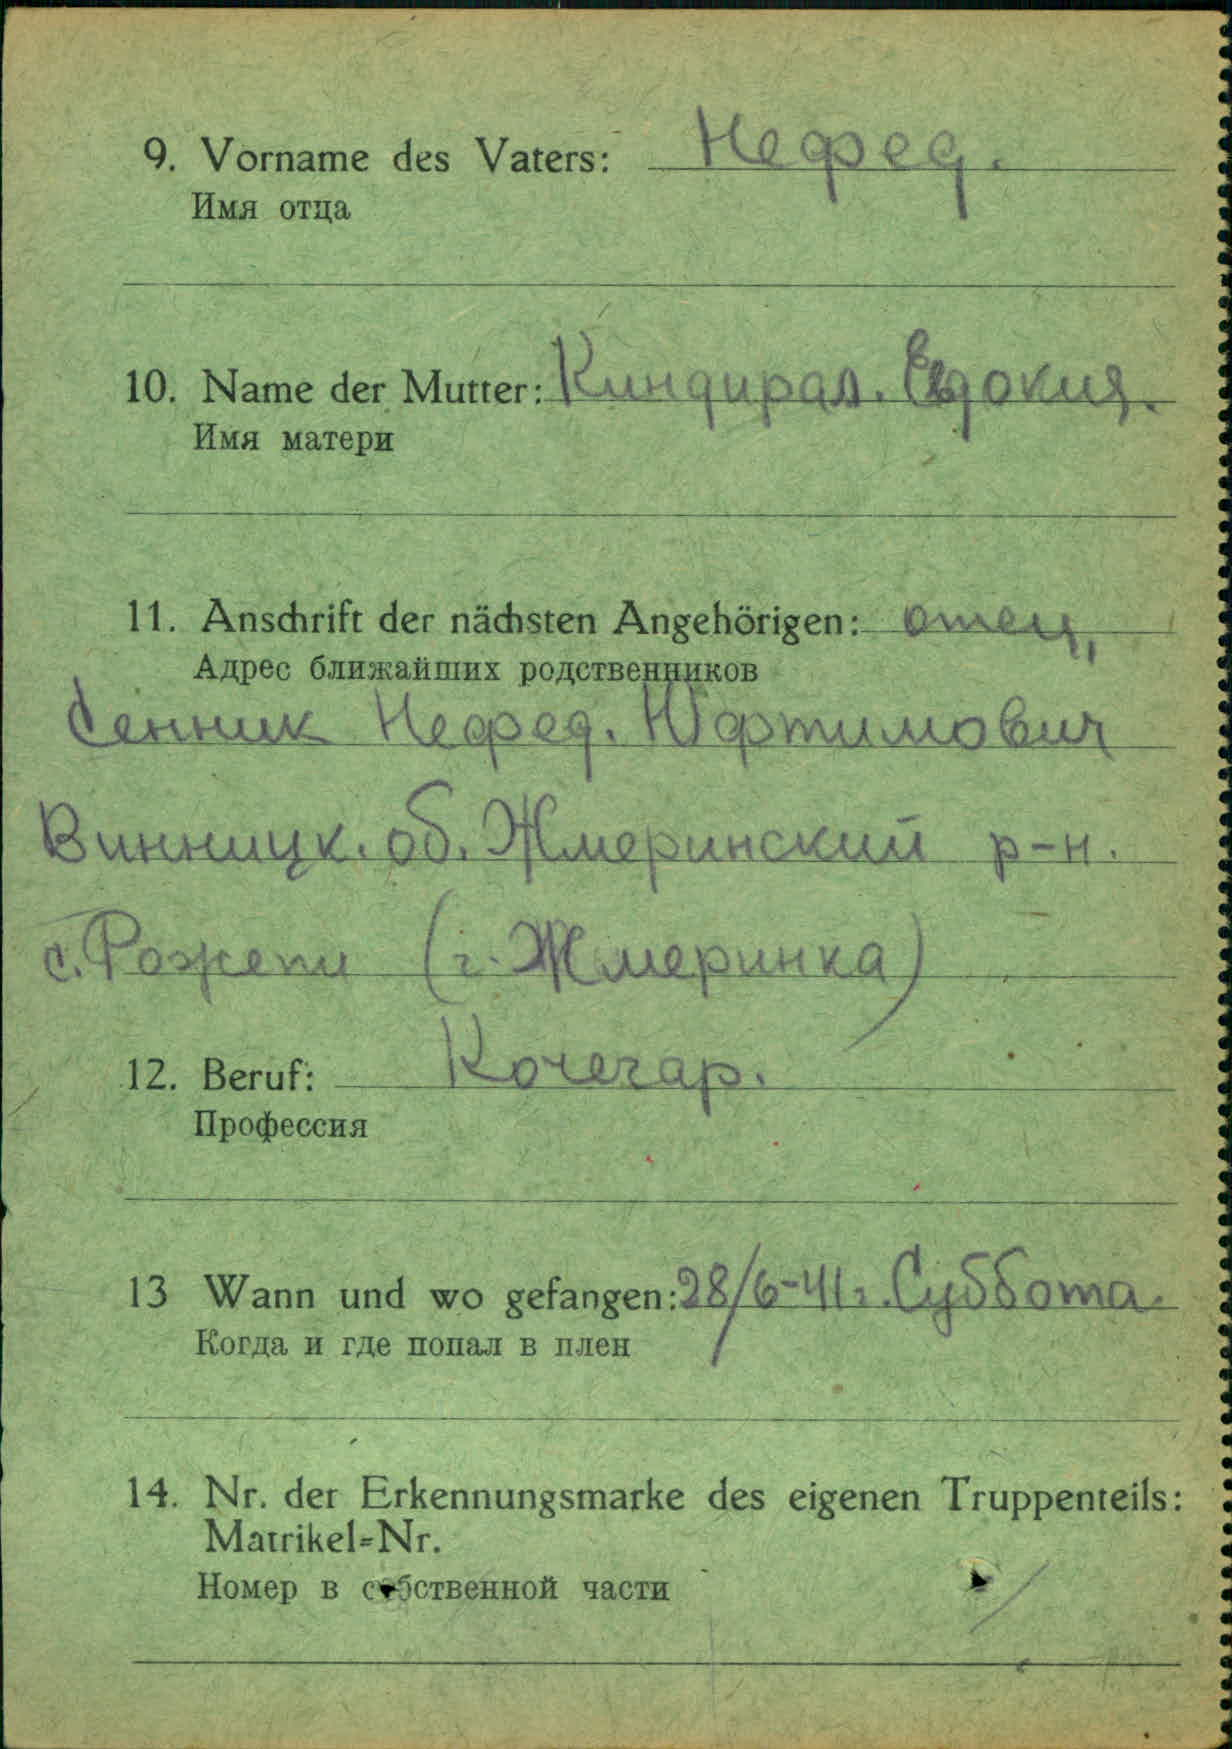 9. Vorname des Vaters: Нефед.
Имя отца
10. Name der Mutter: Киндирал. Евдокия.
Имя матери
11. Anschrift der nächsten Angehörigen: отец,
Адрес ближайших родственников
Сенник Нефед. Юфтимович
Винницк. об. Жмеринский р-н.
с. Рожепи (г. Жмеринка)
12. Beruf: Кочегар.
Профессия
13 Wann und wo gefangen: 28/6-41г. Суббота.
Когда и где попал в плен
14. Nr. der Erkennungsmarke des eigenen Truppenteils:
Matrikel=Nr.
Номер в собственной части